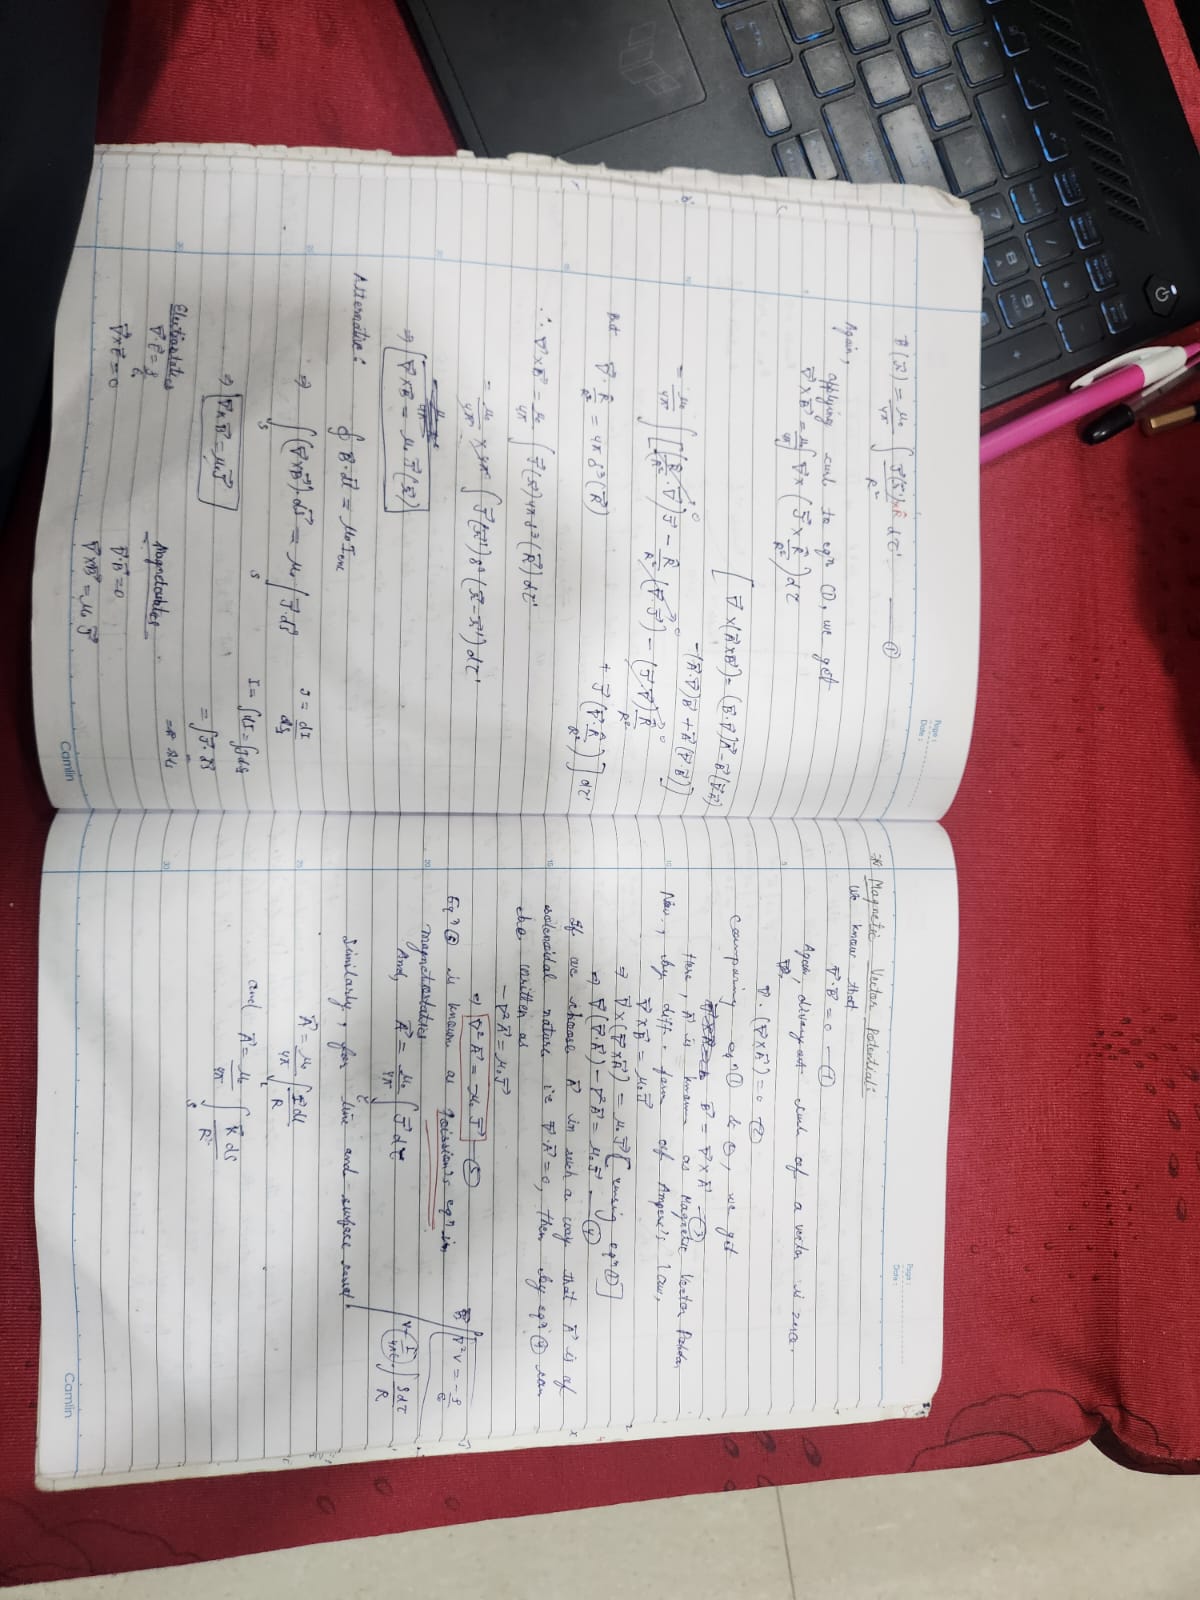 Page :
Date :
B⃗(r⃗) = μ₀/4π ∫ J⃗(r⃗')×R̂/R² dτ' —— ①
Again,
applying curl to eqn ①, we get
∇⃗×B⃗ = μ₀/4π ∫ ∇⃗ × (J⃗ × R̂/R²) dτ
[∇⃗×(A⃗×B⃗) = (B⃗·∇⃗)A⃗ - B⃗(∇⃗·A⃗)
-(A⃗·∇⃗)B⃗ + A⃗(∇⃗·B⃗)]
= μ₀/4π ∫ [(R̂/R² · ∇⃗)J⃗ - R̂/R² (∇⃗·J⃗) - (J⃗·∇⃗) R̂/R²
+ J⃗ (∇⃗·R̂/R²)] dτ'
But ∇⃗· R̂/R² = 4π δ³(R⃗)
∴ ∇⃗×B⃗ = μ₀/4π ∫ J⃗(r⃗') 4π δ³(R⃗) dτ'
= μ₀/4π × 4π ∫ J⃗(r⃗') δ³(r⃗-r⃗') dτ'
⇒ ∇⃗×B⃗ = μ₀ J⃗(r⃗)
Alternative :
∮ B·dl⃗ = μ₀ Ienc
⇒ ∫s (∇⃗×B⃗)·ds⃗ = μ₀ ∫s J⃗·ds⃗
J = dI/ds
I = ∫dI = ∫Jds
= ∫J⃗·ds⃗
⇒ ∇⃗×B⃗ = μ₀J⃗
Electrostatics
∇⃗·E⃗ = ρ/ε₀
∇⃗×E⃗ = 0
Magnetostatics
∇⃗·B⃗ = 0
∇⃗×B⃗ = μ₀ J⃗
Camlin
Page :
Date :
Magnetic Vector Potential :
We know that
∇⃗·B⃗ = 0 — ①
Again, divergent curl of a vector is zero.
∇⃗·(∇⃗×A⃗) = 0 —②
Comparing eqn ① & ②, we get
B⃗ = ∇⃗×A⃗ —③
Here, A⃗ is known as Magnetic Vector
Now, by diff. form of Ampere's law,
∇⃗×B⃗ = μ₀J⃗
⇒ ∇⃗×(∇⃗×A⃗) = μ₀J⃗ [using eqn
⇒ ∇⃗(∇⃗·A⃗) - ∇²A⃗ = μ₀J⃗ —④
If we choose A⃗ in such a way that A⃗ is of
solenoidal nature ie ∇⃗·A⃗ = 0, then by eqn ④ can
be written as
-∇²A⃗ = μ₀J⃗
⇒ ∇²A⃗ = -μ₀J⃗ —⑤
∇²V = -ρ/ε₀
Eqn ⑤ is known as poission's eqn in
magnetostatics
And, A⃗ = μ₀/4π ∫ J⃗ dτ
V = 1/4πε₀ ∫ ρdτ/R
Similarly, for line and surface
A⃗ = μ₀/4π ∫ I⃗ dl/R
and A⃗ = μ₀/4π ∫s K⃗ ds/R
5
10
15
20
25
30
Camlin